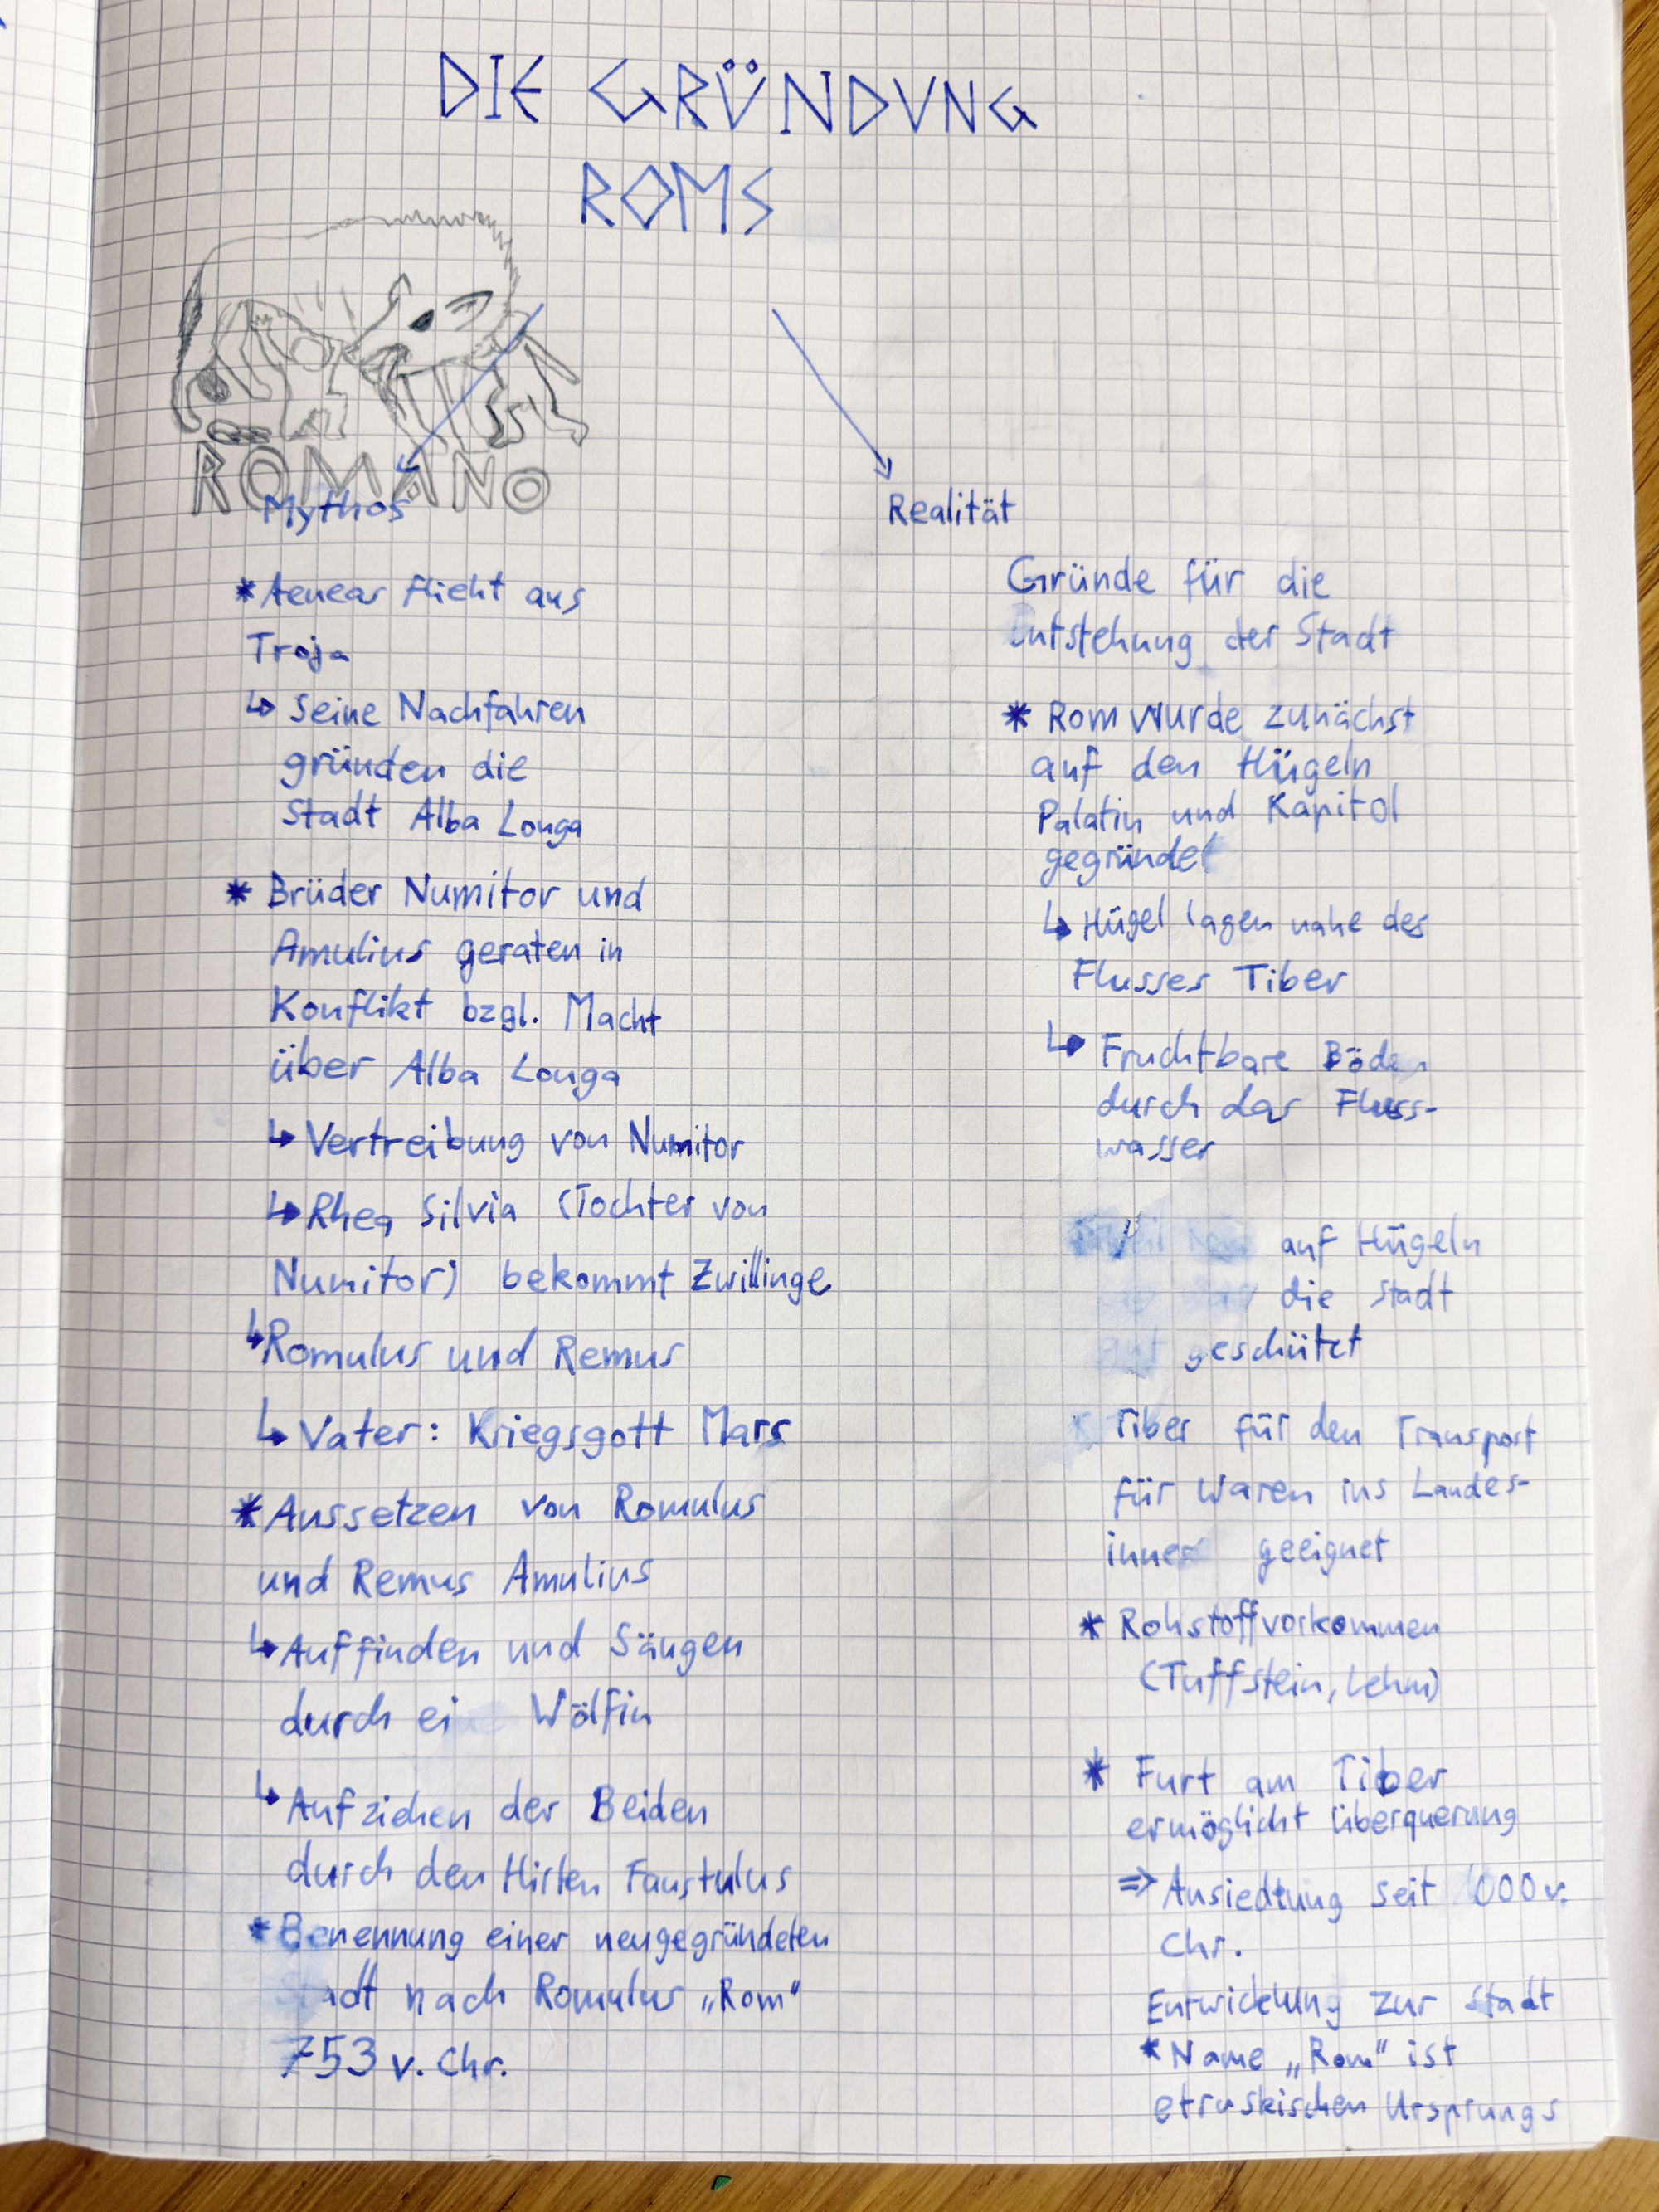 DIE GRÜNDVNG
ROMS
ROMANO
Mythos
* Aeneas flieht aus
Troja
↳ Seine Nachfahren
gründen die
Stadt Alba Longa
* Brüder Numitor und
Amulius geraten in
Konflikt bzgl. Macht
über Alba Longa
↳ Vertreibung von Numitor
↳ Rhea Silvia (Tochter von
Numitor) bekommt Zwillinge
↳ Romulus und Remus
↳ Vater: Kriegsgott Mars
* Aussetzen von Romulus
und Remus Amulius
↳ Auffinden und Säugen
durch eine Wölfin
↳ Aufziehen der Beiden
durch den Hirten Faustulus
* Benennung einer neugegründeten
Stadt nach Romulus „Rom“
753 v. Chr.
Realität
Gründe für die
Entstehung der Stadt
* Rom wurde zunächst
auf den Hügeln
Palatin und Kapitol
gegründet
↳ Hügel lagen nahe des
Flusses Tiber
↳ Fruchtbare Böden
durch das Fluss-
wasser
auf Hügeln
die Stadt
geschützt
* Tiber für den Transport
für Waren ins Landes-
innere geeignet
* Rohstoffvorkommen
(Tuffstein, Lehm)
* Furt am Tiber
ermöglicht Überquerung
⇒ Ansiedlung seit 1000 v.
Chr.
Entwicklung zur Stadt
* Name „Rom“ ist
etruskischen Ursprungs